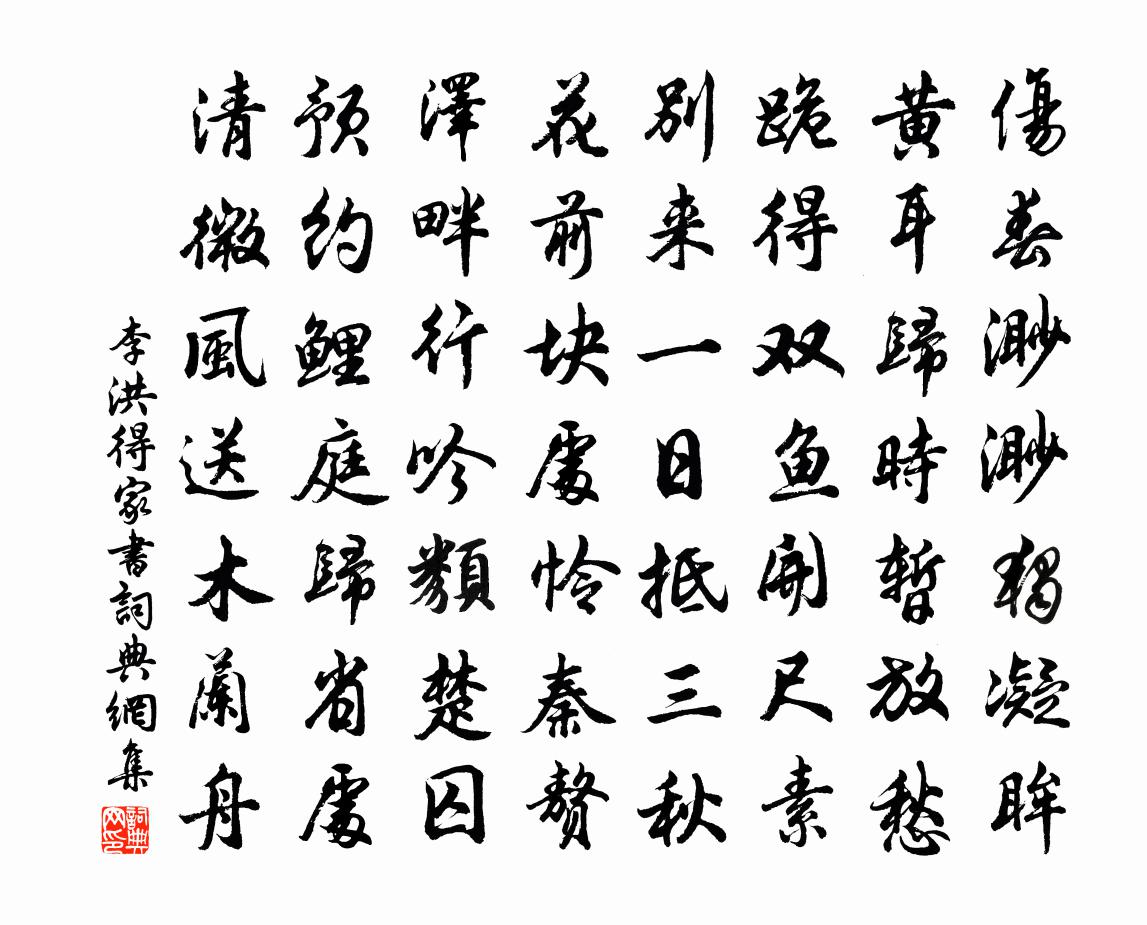 傷春渺渺獨凝眸
黄耳歸時暫放愁
跪得双鱼開尺素
别来一日抵三秋
花前块處怜秦赘
澤畔行吟類楚囚
预约鯉庭歸省處
清微風送木蘭舟
李洪得家書詞典網集
詞典网印